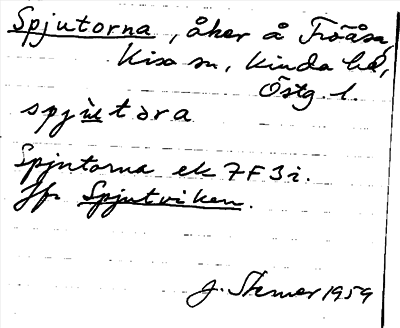 Spjutorna, åker å Fröåsa,
Kisa sn, Kinda hd,
Östg. l.
spjùtòra
Spjutorna ek 7F3i.
Jfr Spjutviken.
J. 1959